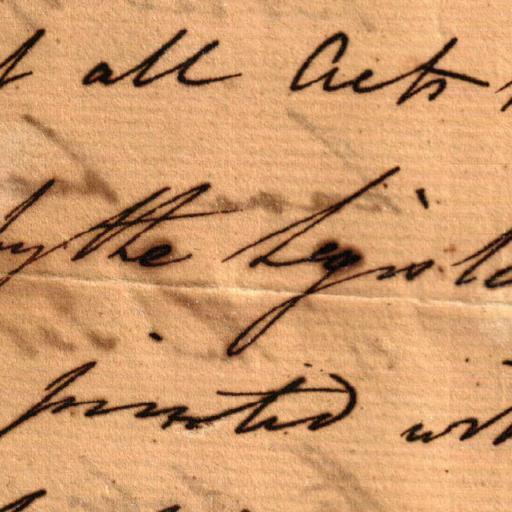 all Acts
by the Legisla
printed